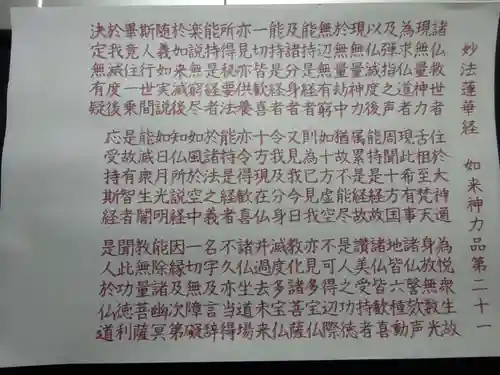 妙法蓮華経 如来神力品第二十一
諸仏救世者 住於大神通 為悦衆生故
現無量神力 舌相至梵天 身放無数光
為求仏道者 現此希有事 諸仏謦欬声
及弾指之声 周聞十方国 地皆六種動
以仏滅度後 能持是経故 諸仏皆歓喜
現無量神力 属累是経故 讃美受持者
於無量劫中 猶故不能尽 是人之功徳
無辺無有窮 如十方虚空 不可得辺際
能持是経者 則為已見我 亦見多宝仏
及諸分身者 又見我今日 教化諸菩薩
能持是経者 令我及分身 滅度多宝仏
一切皆歓喜 十方現在仏 并過去未来
亦見亦供養 亦令得歓喜 諸仏坐道場
所得秘要法 能持是経者 不久亦当得
能持是経者 於諸法之義 名字及言辞
楽説無窮尽 如風於空中 一切無障礙
於如来滅後 知仏所説経 因縁及次第
随義如実説 如日月光明 能除諸幽冥
斯人行世間 能滅衆生闇 教無量菩薩
畢竟住一乗 是故有智者 聞此功徳利
於我滅度後 応受持斯経 是人於仏道
決定無有疑